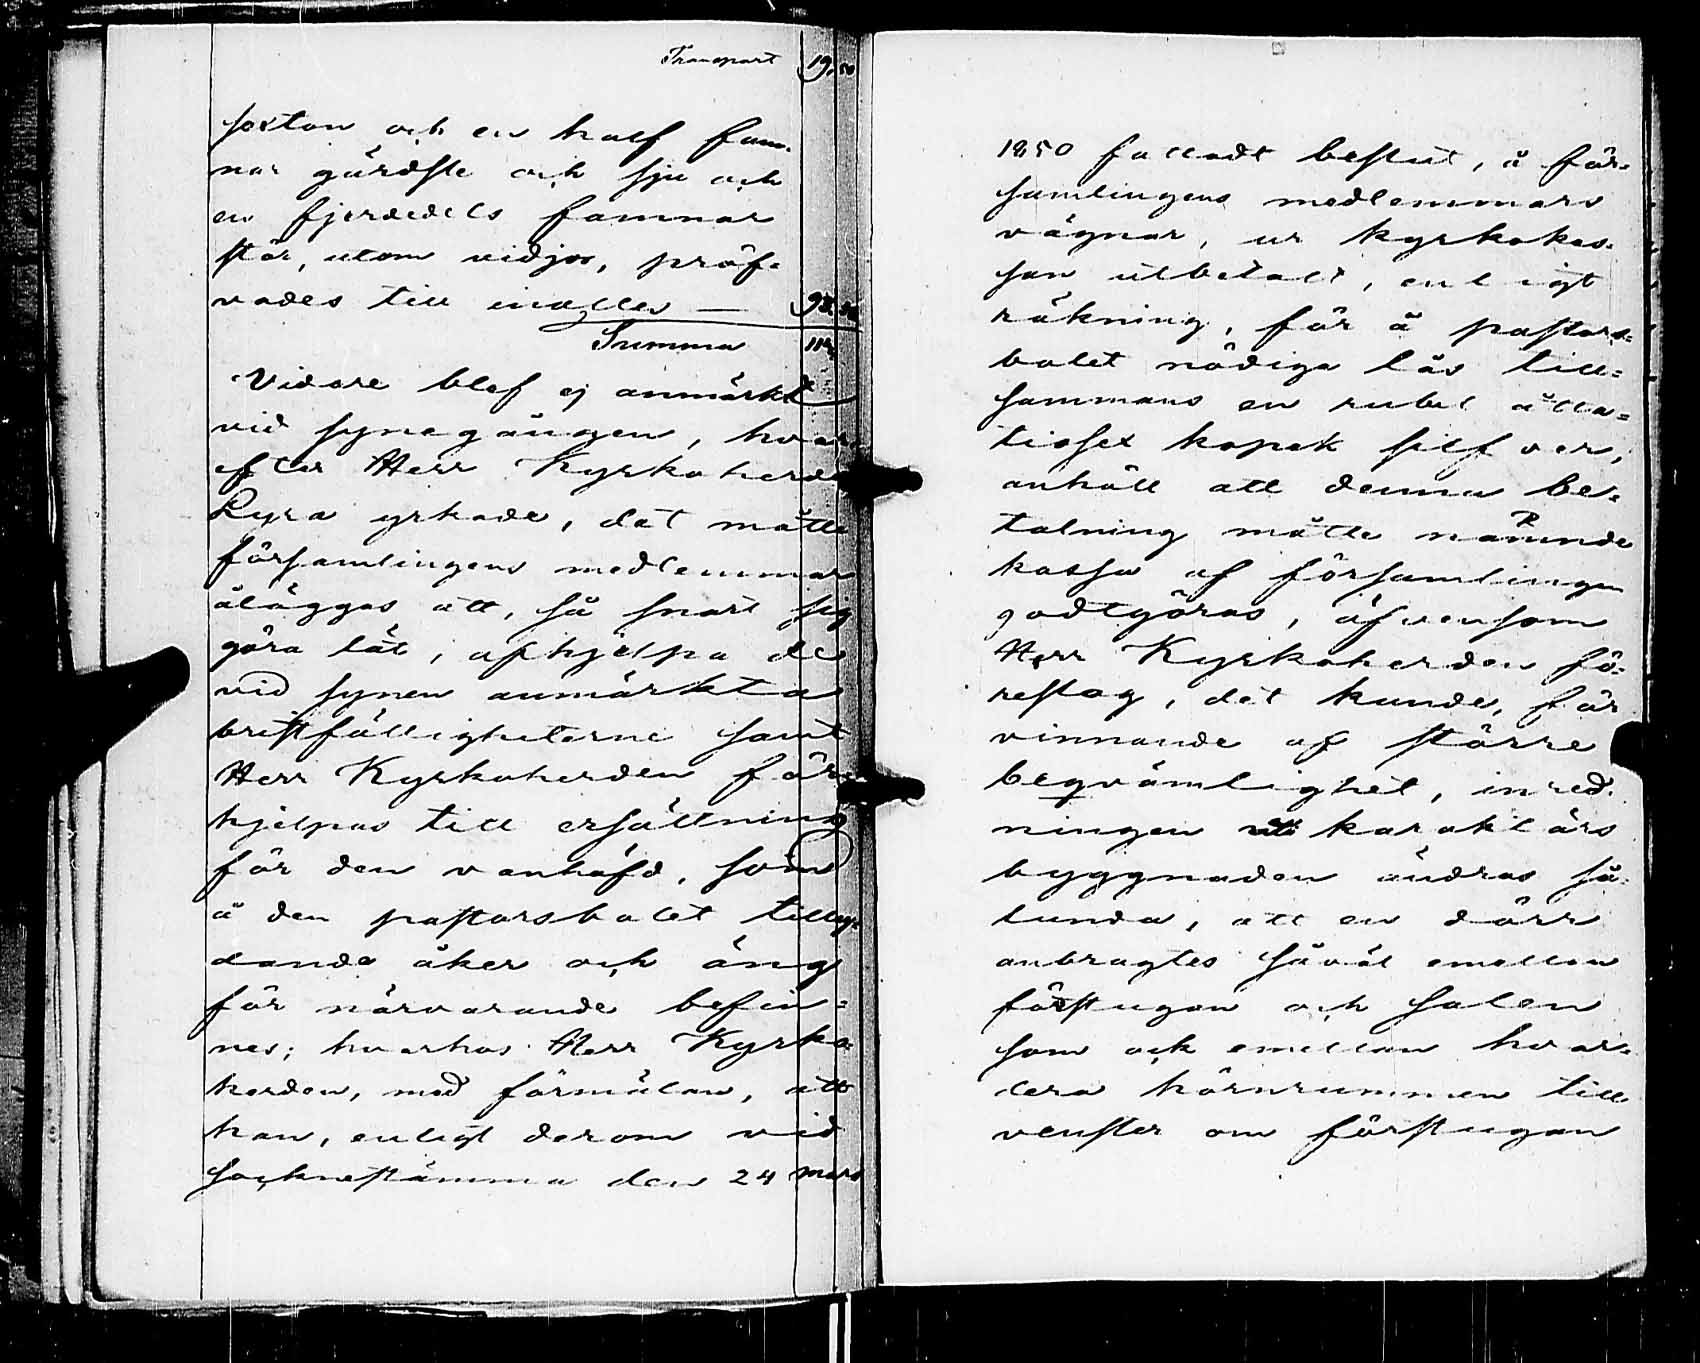 Transport 19,50
sexton och en half fam-
nar gärdsle och sju och
en fjerdedels famnar
stör, utom vidjor, pröf-
vades till inalles —
Summa
Vidare blef ej anmärkt
vid synegången, hvar-
efter Herr Kyrkoherde
Lyra yrkade, det måtte
församlingens medlemmar
åläggas att, så snart sig
göra låt, afhjelpa de
vid synen anmärkta
bristfälligheterne samt
Herr Kyrkoherden för-
hjelpas till ersättning
för den vanhäfd, som
å den pastorsbolet tilly-
dande åker och äng
för närvarande befin-
nes; hvarhos Herr Kyrko-
herden, med förmälan, att
han, enligt derom vid
socknestämma den 24 mars
1850 falladt beslut, å för-
samlingens medlemmars
vägnar, ur kyrkokas-
san utbetalt, enligt
räkning, för å pastors-
bolet nödiga lås till-
sammans en rubel åtta-
tiosex kopek silfver,
anhöll att denna be-
talning måtte nämnde
kassa af församlingen
godtgöras, äfvensom
Herr Kyrkoherden fö-
reslog, det kunde, för
vinnande af större
beqvämlighet, inred-
ningen karaktärs
byggnaden ändras så-
lunda, att en dörr
anbragtes såväl emellan
förstugan och salen
som ock emellan hvar-
dera hörnrummen till
venster om förstugan